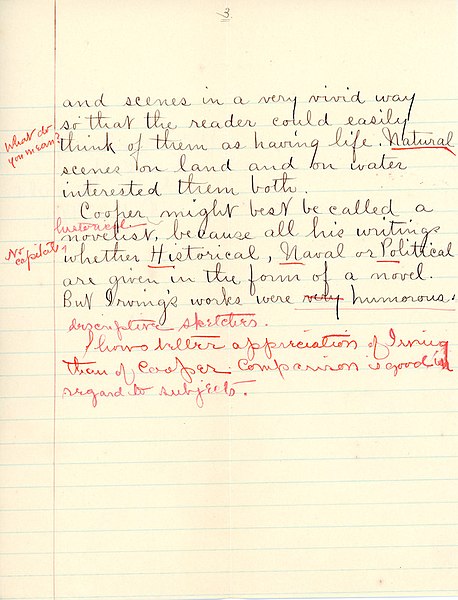 3.
and scenes in a very vivid way
so that the reader could easily
What do you mean?
think of them as having life. Natural
scenes on land and on water
interested them both.
Cooper might best be called a
novelist, because all his writings
No capitals
whether Historical, Naval or Political
are given in the form of a novel.
But Irving's works were very humorous.
descriptive sketches.
Shows better appreciation of Irving
than of Cooper. Comparison is good in
regard to subjects.